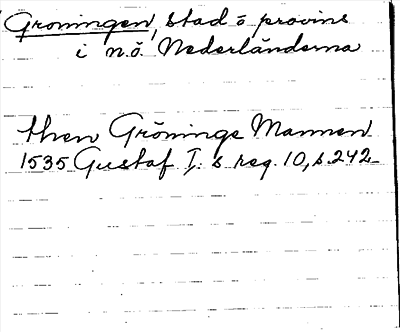 Groningen, stad o provins
i n.ö. Nederländerna
then Gröninge Mannen
1535 Gustaf I:s reg. 10, s. 242